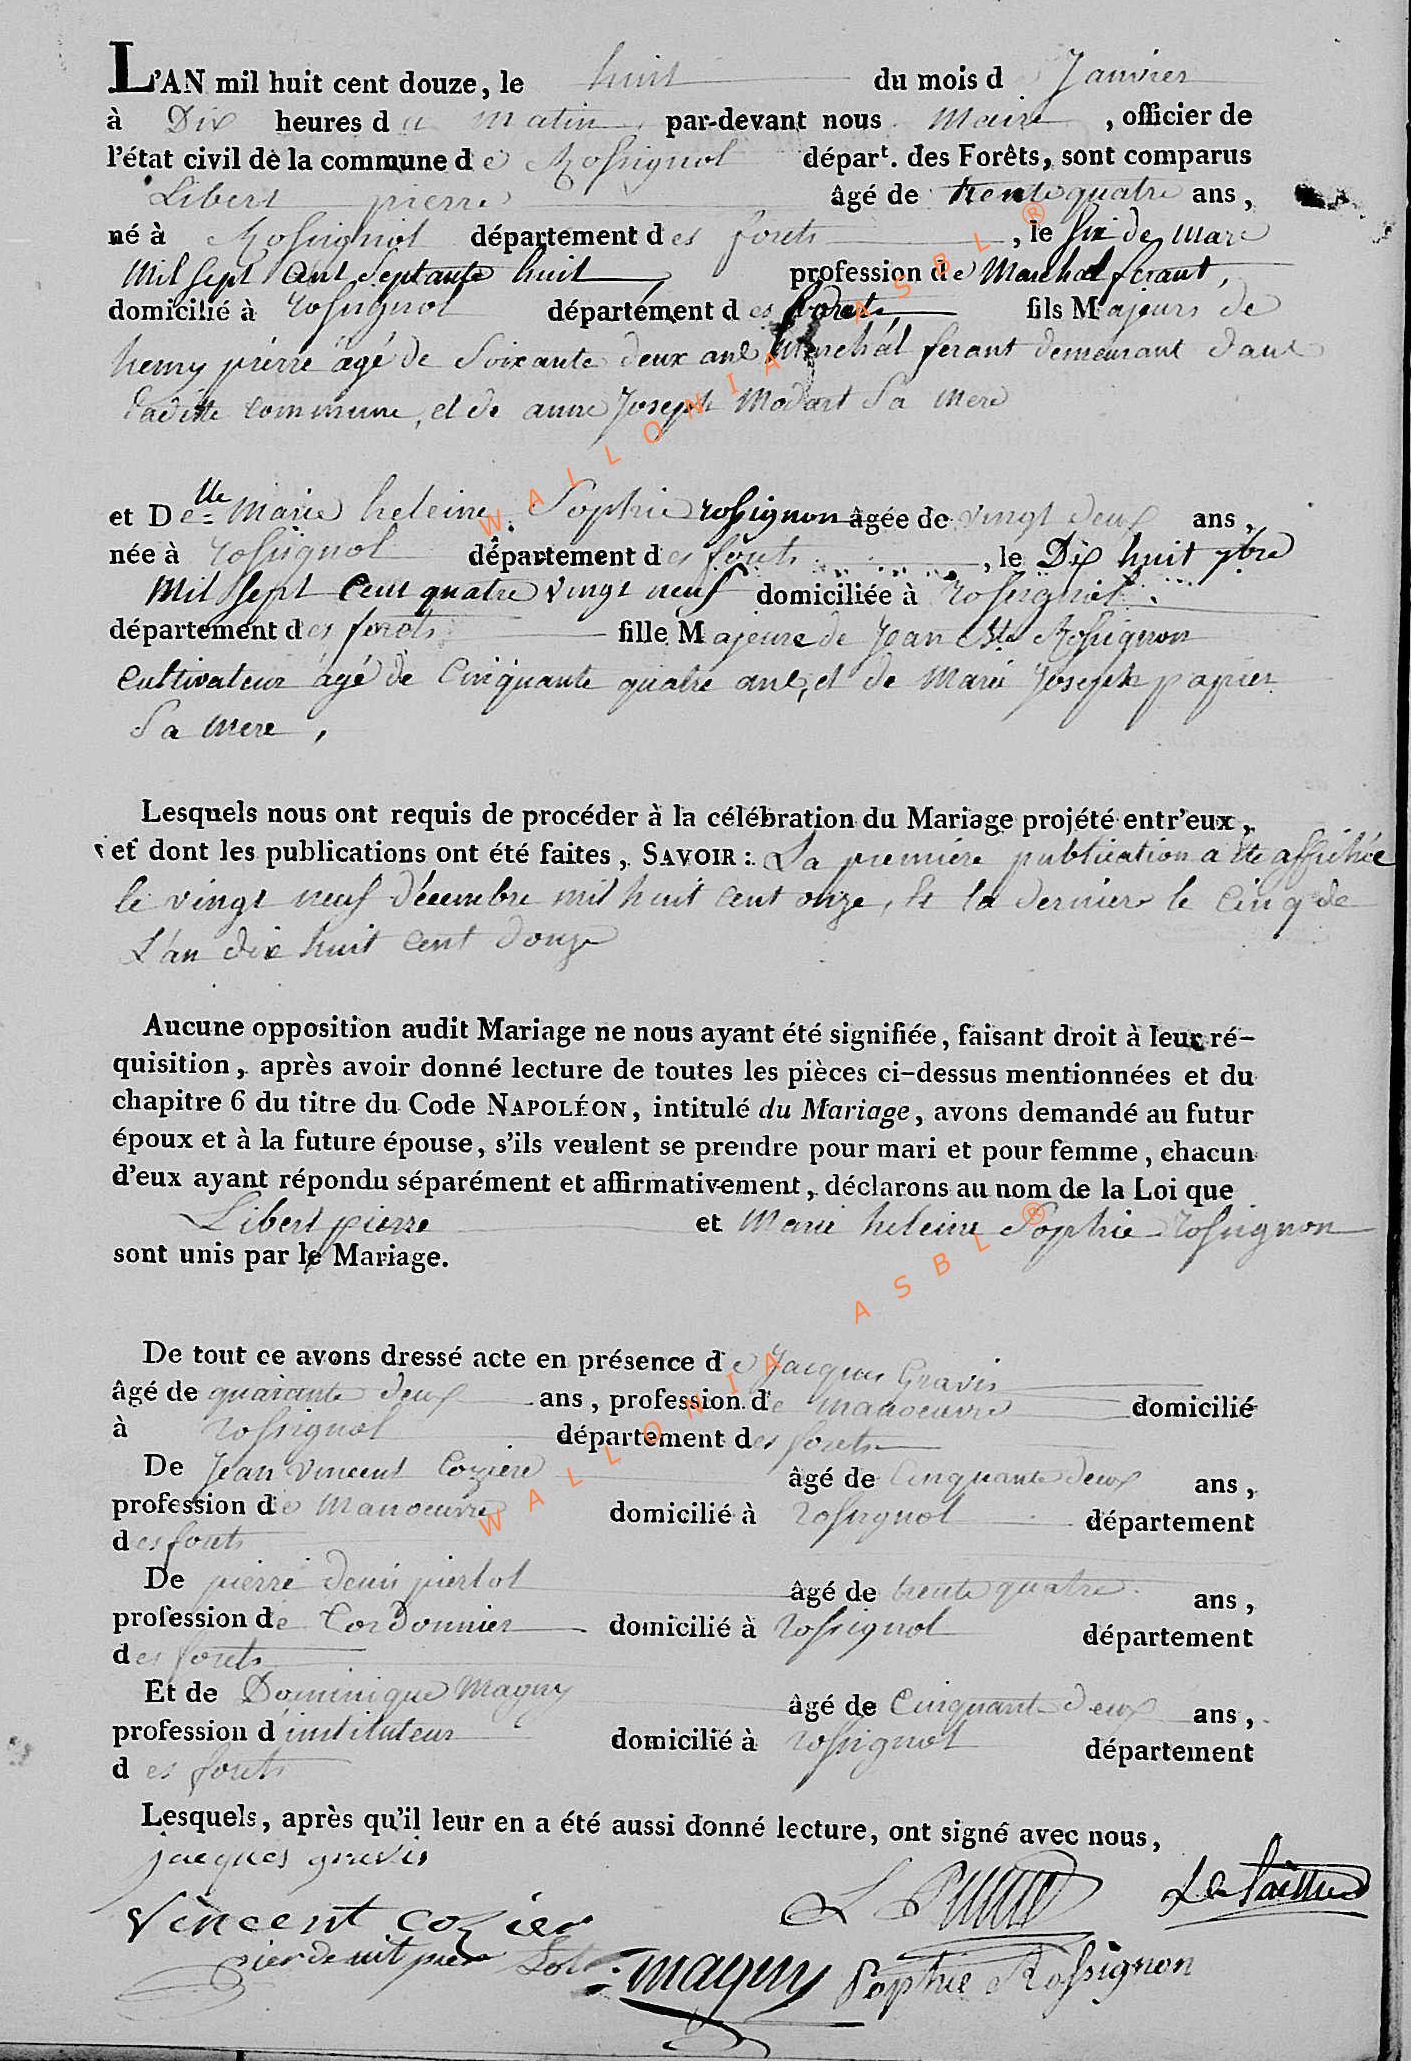 L'AN mil huit cent douze, le huit du mois d Janvier
à Dix heures du matin, par-devant nous Maire, officier de
l'état civil de la commune de Rossignol départ. des Forêts, sont comparus
Libert pierre âgé de trente quatre ans,
né à Rossignol département des forets, le six de mars
Mil sept cent septante huit, profession de Marchal ferant,
domicilié à rossignol département des forets, fils Majeurs de
henry pierre agé de Soixante deux ans Marchál ferant demeurant dans
Laditte commune, et de anne Joseph Modart Sa mere
et Delle Marie heleine Sophie rossignon âgée de vingt deux ans,
née à rossignol département des forets, le Dix huit 7bre
Mil sept Cent quatre vingt neuf domiciliée à rossignol
département des forets fille Majeure de Jean Bte Rossignon
Cultivateur agé de Cinquante quatre ans, et de Marie Joseph papier
Sa mere,
Lesquels nous ont requis de procéder à la célébration du Mariage projété entr'eux,
et dont les publications ont été faites, SAVOIR: La premiere publication a ete affichée
le vingt neuf décembre mil huit cent onze, et la derniere le Cinq de
L'an dix huit cent douze
Aucune opposition audit Mariage ne nous ayant été signifiée, faisant droit à leur ré-
quisition, après avoir donné lecture de toutes les pièces ci-dessus mentionnées et du
chapitre 6 du titre du Code NAPOLÉON, intitulé du Mariage, avons demandé au futur
époux et à la future épouse, s'ils veulent se prendre pour mari et pour femme, chacun
d'eux ayant répondu séparément et affirmativement, déclarons au nom de la Loi que
Libert pierre et Marie heleine Sophie Rossignon
sont unis par le Mariage.
De tout ce avons dressé acte en présence de Jacques Gravis
âgé de quarante deux ans, profession de manoeuvre domicilié
à rossignol département des forets
De Jean Vincent Coziere âgé de Cinquante deux ans,
profession de Manoeuvre domicilié à rossignol département
des forets
De pierre denis pierlot âgé de trente quatre ans,
profession de Cordonnier domicilié à rossignol département
des forets
Et de Dominique Magny âgé de Cinquante deux ans,
profession d'instituteur domicilié à rossignol département
des forets
Lesquels, après qu'il leur en a été aussi donné lecture, ont signé avec nous,
jacques gravis
Vincent cozier
magny Sophie Rossignon
WALLONIA ASBL ®
WALLONIA ASBL ®